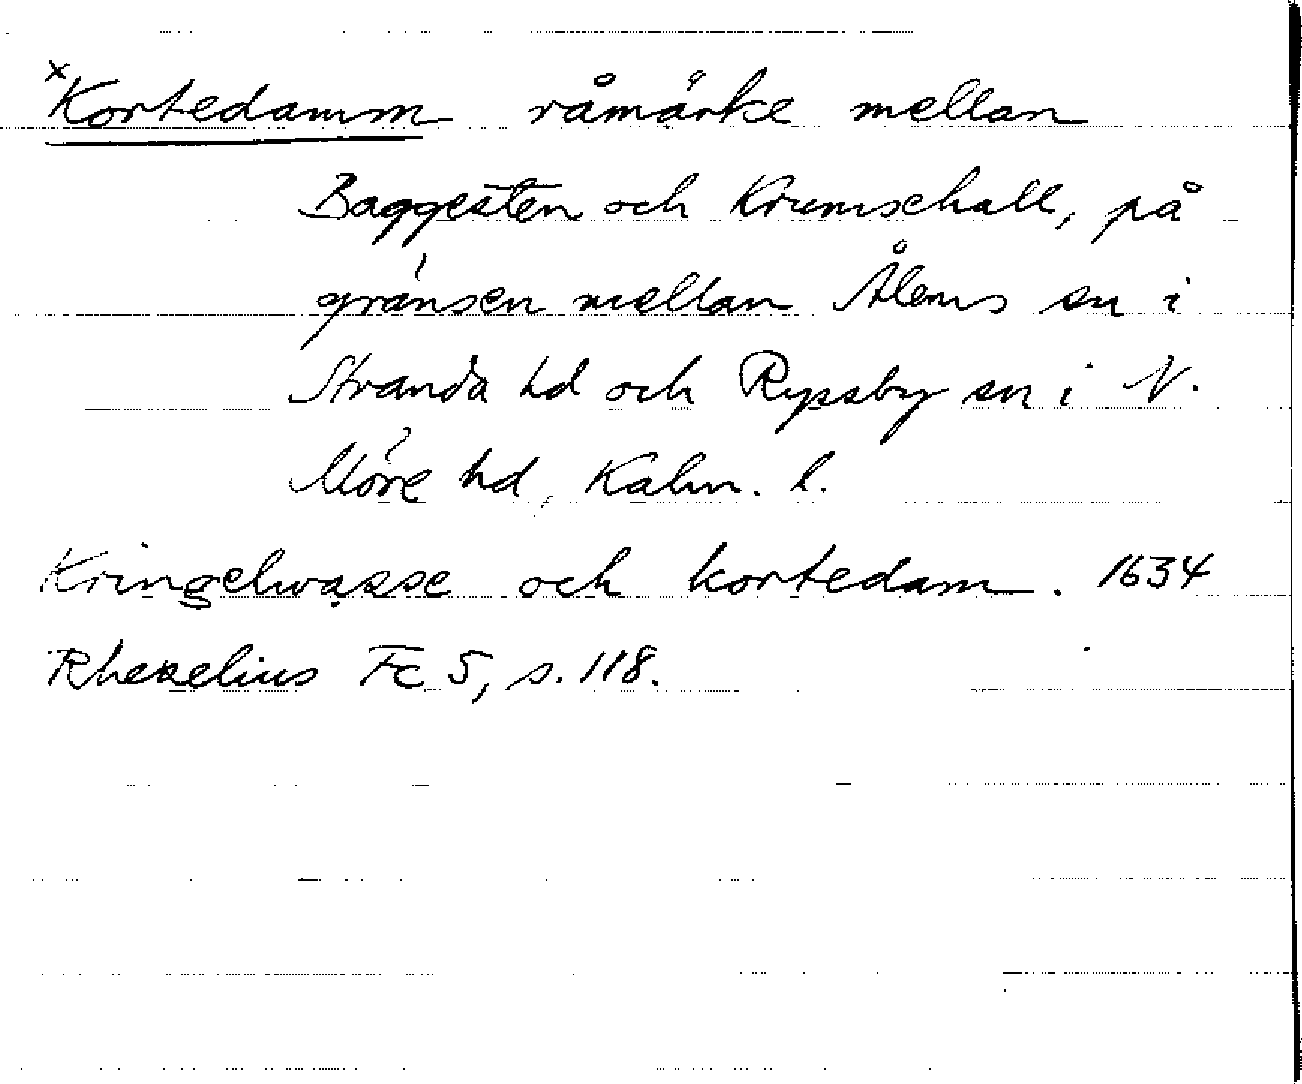 ×Kortedamm råmärke mellan
Baggesten och Krumschall, på
gränsen mellan Ålems sn i
Stranda hd och Ryssby sn i N.
Möre hd, Kalm. l.
Kringelwasse och kortedam. 1634
Rhezelius Fc 5, s. 118.